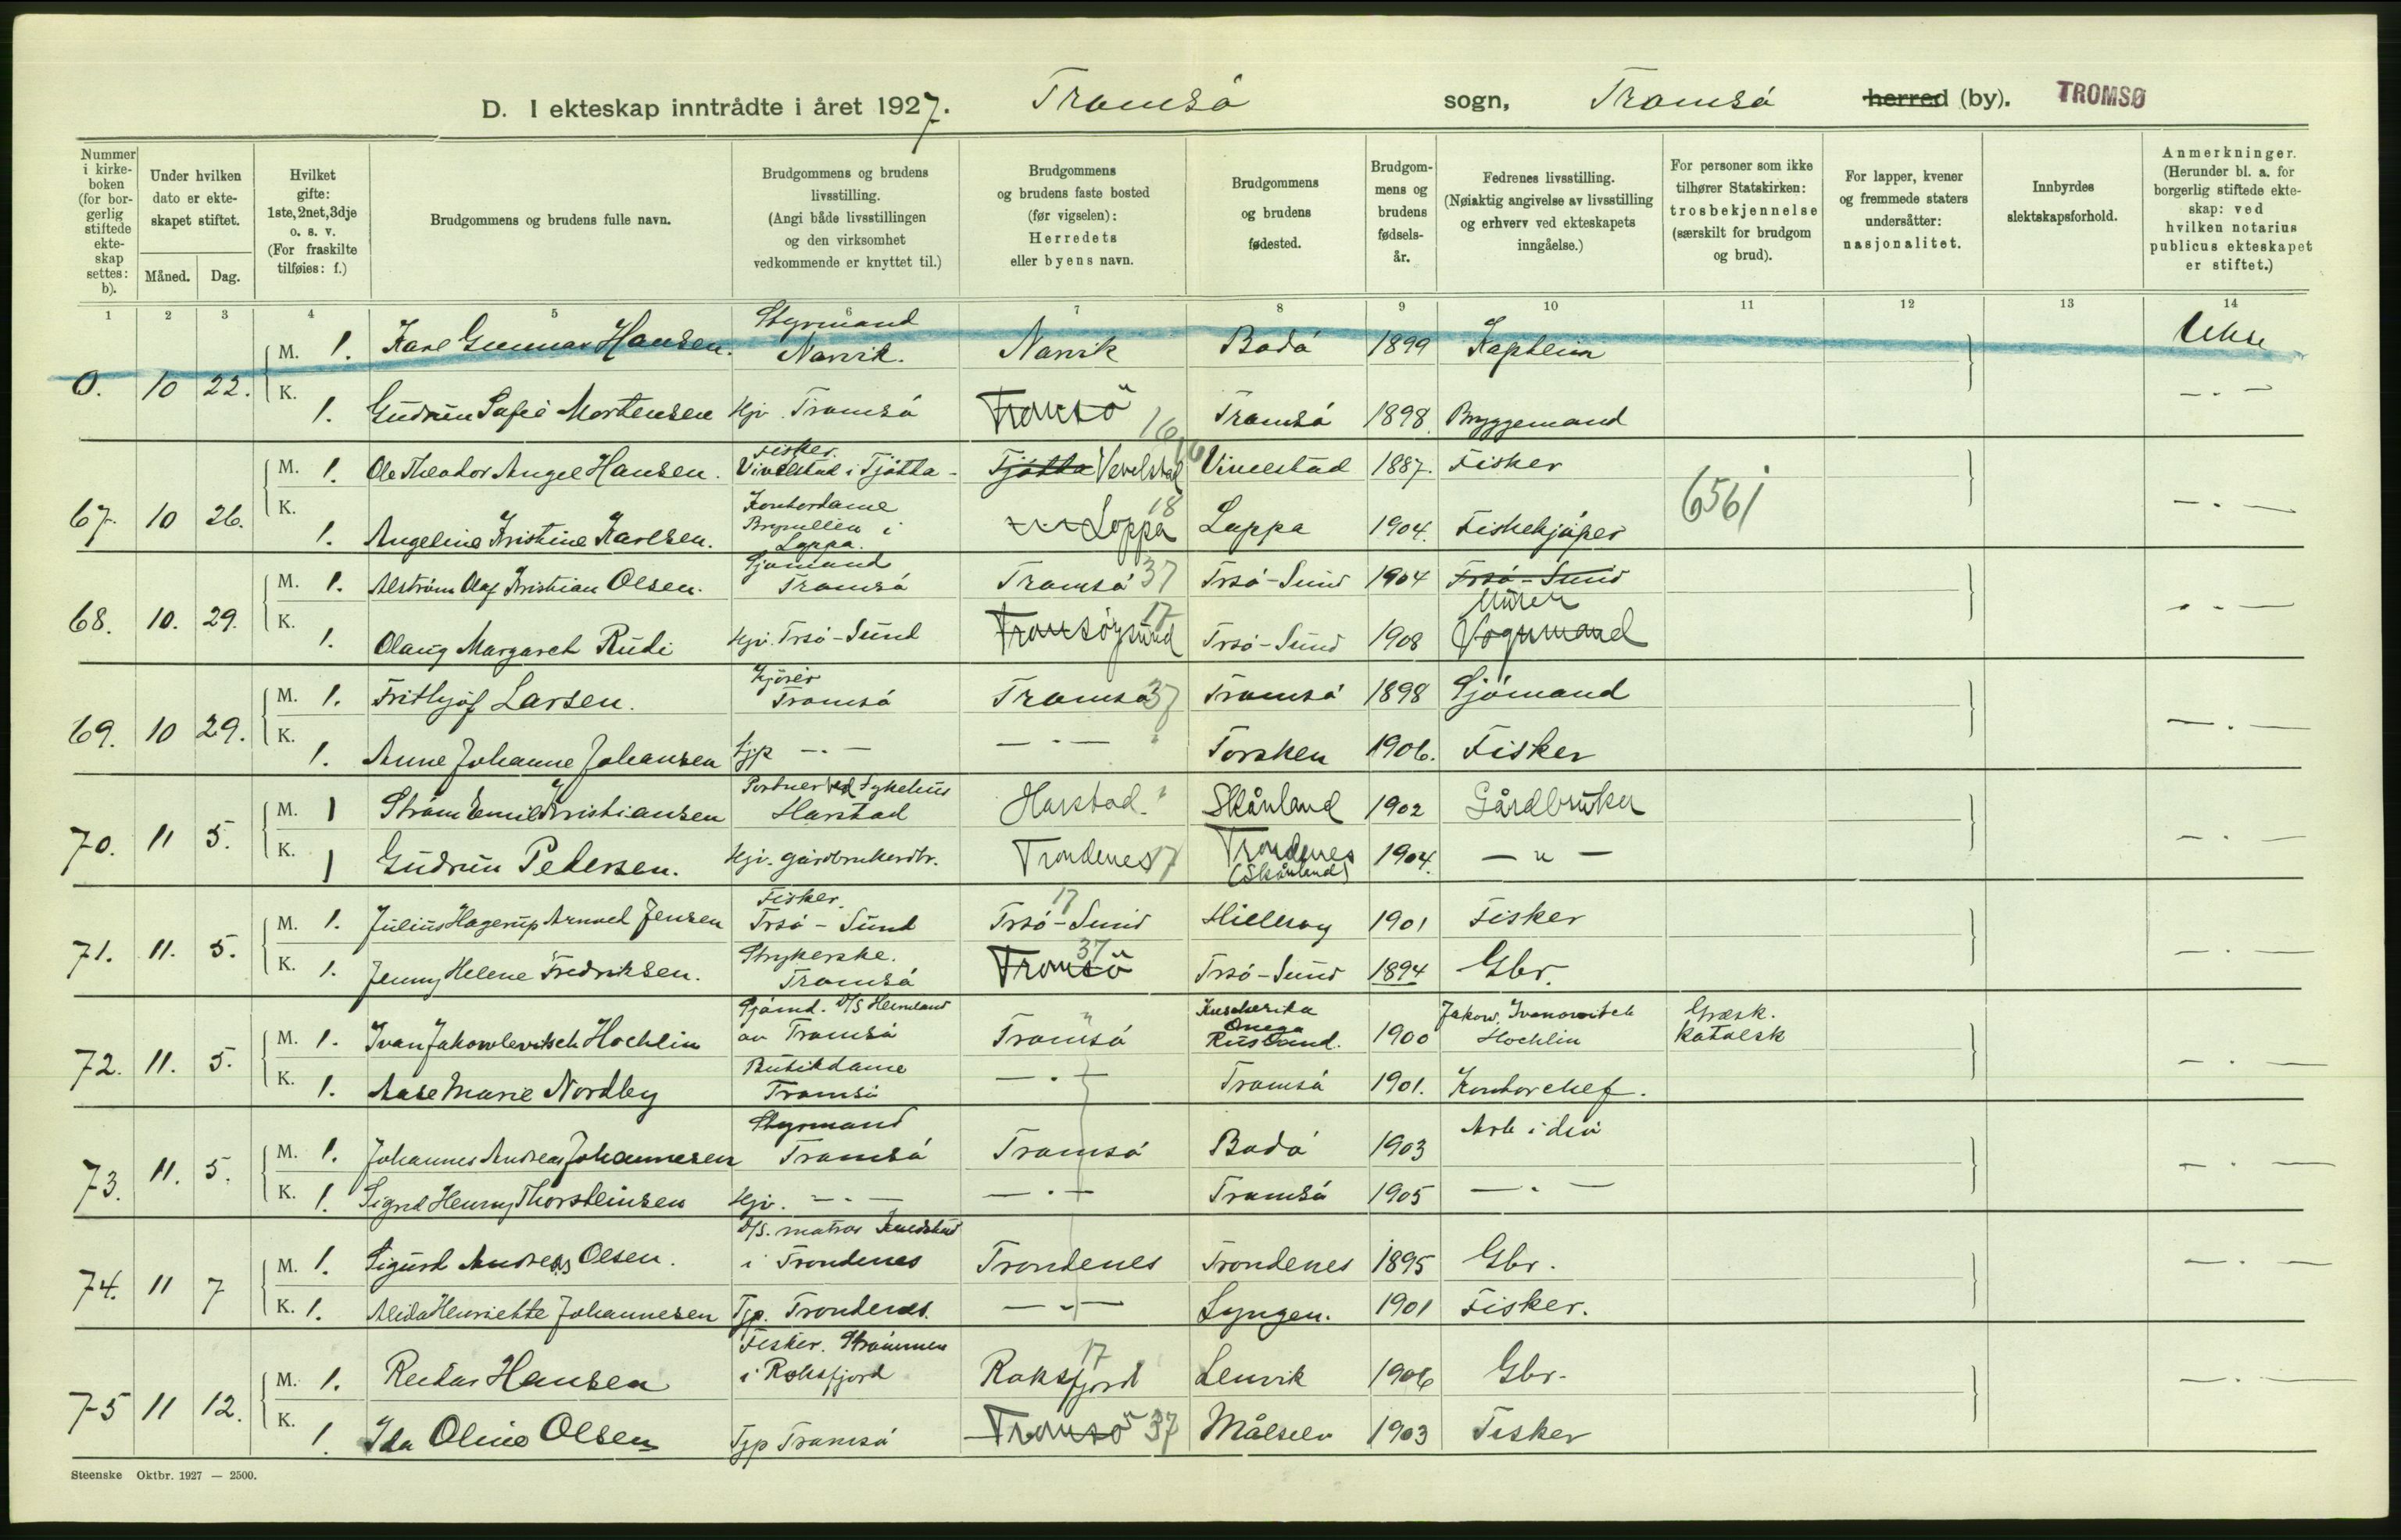 D. I ekteskap inntrådte i året 1927. Tromsö sogn, Tromsö herred (by). TROMSØ
Nummer i kirke-boken (for bor-gerlig stiftede ekte-skap settes: b).
Under hvilken dato er ekte-skapet stiftet.
Måned. Dag.
Hvilket gifte: 1ste, 2net, 3dje o. s. v. (For fraskilte tilføies: f.)
Brudgommens og brudens fulle navn.
Brudgommens og brudens livsstilling. (Angi både livsstillingen og den virksomhet vedkommende er knyttet til.)
Brudgommens og brudens faste bosted (før vigselen): Herredets eller byens navn.
Brudgommens og brudens fødested.
Brudgom-mens og brudens fødsels-år.
Fedrenes livsstilling. (Nøiaktig angivelse av livsstilling og erhverv ved ekteskapets inngåelse.)
For personer som ikke tilhører Statskirken: trosbekjennelse (særskilt for brudgom og brud).
For lapper, kvener og fremmede staters undersåtter: nasjonalitet.
Innbyrdes slektskapsforhold.
Anmerkninger. (Herunder bl. a. for borgerlig stiftede ekte-skap: ved hvilken notarius publicus ekteskapet er stiftet.)
1 2 3 4 5 6 7 8 9 10 11 12 13 14
Styrmand
M. 1. Karl Gunnar Hansen. Narvik. Narvik Bodö 1899 Kaptein
0. 10 22.
K. 1. Gudrun Sofie Mortensen Hjv. Tromsö Tromsö Tromsö 1898. Bryggemand — . —
16
Fisker.
M. 1. Ole Theodor Angel Hansen. Vivelstad i Tjötta - Tjøtta Vevelstad Vivelstad 1887. Fisker
67. 10 26.
6561
Kontordame 18
K. 1. Angeline Kristine Karlsen. Brynillen i Loppa. Loppa Loppa 1904. Fiskekjöper — . —
Sjömand
M. 1. Alström Olaf Kristian Olsen. Tromsö Tromsö 37 Trsö-Sund 1904 Trsö-Sund
Murer
68. 10. 29.
K. 1. Olaug Margareth Rudi Hjv. Trsö-Sund Tromsöysund 17 Trsö-Sund 1908 Vognmand — . —
Kjörer
M. 1. Frithjof Larsen. Tromsö Tromsö 37 Tromsö 1898 Sjömand
69. 10 29.
K. 1. Anne Johanne Johansen Tjp — . — — . — " Torsken 1906. Fisker — . —
Portner ved Sykehus
M. 1 Ström Emil Kristiansen Harstad Harstad. Skånland 1902 Gårdbruker
70. 11 5.
K. 1 Gudrun Pedersen. Hjv. gårdbrukerdtr. Trondenes 17 Trondenes (Skånland) 1904. — " — — . —
Fisker. 17
M. 1. Julius Hagerup Arnold Jensen Trsö - Sund Trsö-Sund Hillesöy 1901 Fisker
71. 11. 5.
Strykerske. 37
K. 1. Jenny Helene Fredriksen. Tromsö Tromsö Trsö-Sund 1894 Gbr. — . —
Sjömd. D/S Heimland Kuscherika Jakow Ivanowitsch Græsk.
M. 1. Ivan Jakowlewitsch Hochlin av Tromsö Tromsö Onega Rusland. 1900 Hochlin katolsk
72. 11. 5.
Butikdame
K. 1. Aase Marie Nordby Tromsö — . — Tromsö 1901. Kontorchef. — . —
Styrmand
M. 1. Johannes Andreas Johannesen Tromsö Tromsö Bodö 1903 Arb i div
73. 11. 5.
K. 1. Sigrid Henny Thorsteinsen Hjv. — . — — . — Tromsö 1905 — . — — . —
D/S. matros
M. 1. Sigurd Andreas Olsen. i Trondenes Trondenes Trondenes 1895 Gbr.
74. 11 7
K. 1. Alida Henriette Johannesen Tjp. Trondenes. — . — Lyngen. 1901 Fisker. — . —
Fisker. Strömmen 17
M. 1. Reidar Hansen i Roksfjord Roksfjord Lenvik 1906 Gbr.
75 11 12.
K. 1. Ida Oline Olsen Tjp Tromsö Tromsö 37 Målselv 1903 Fisker — . —
Steenske Oktbr. 1927 — 2500.